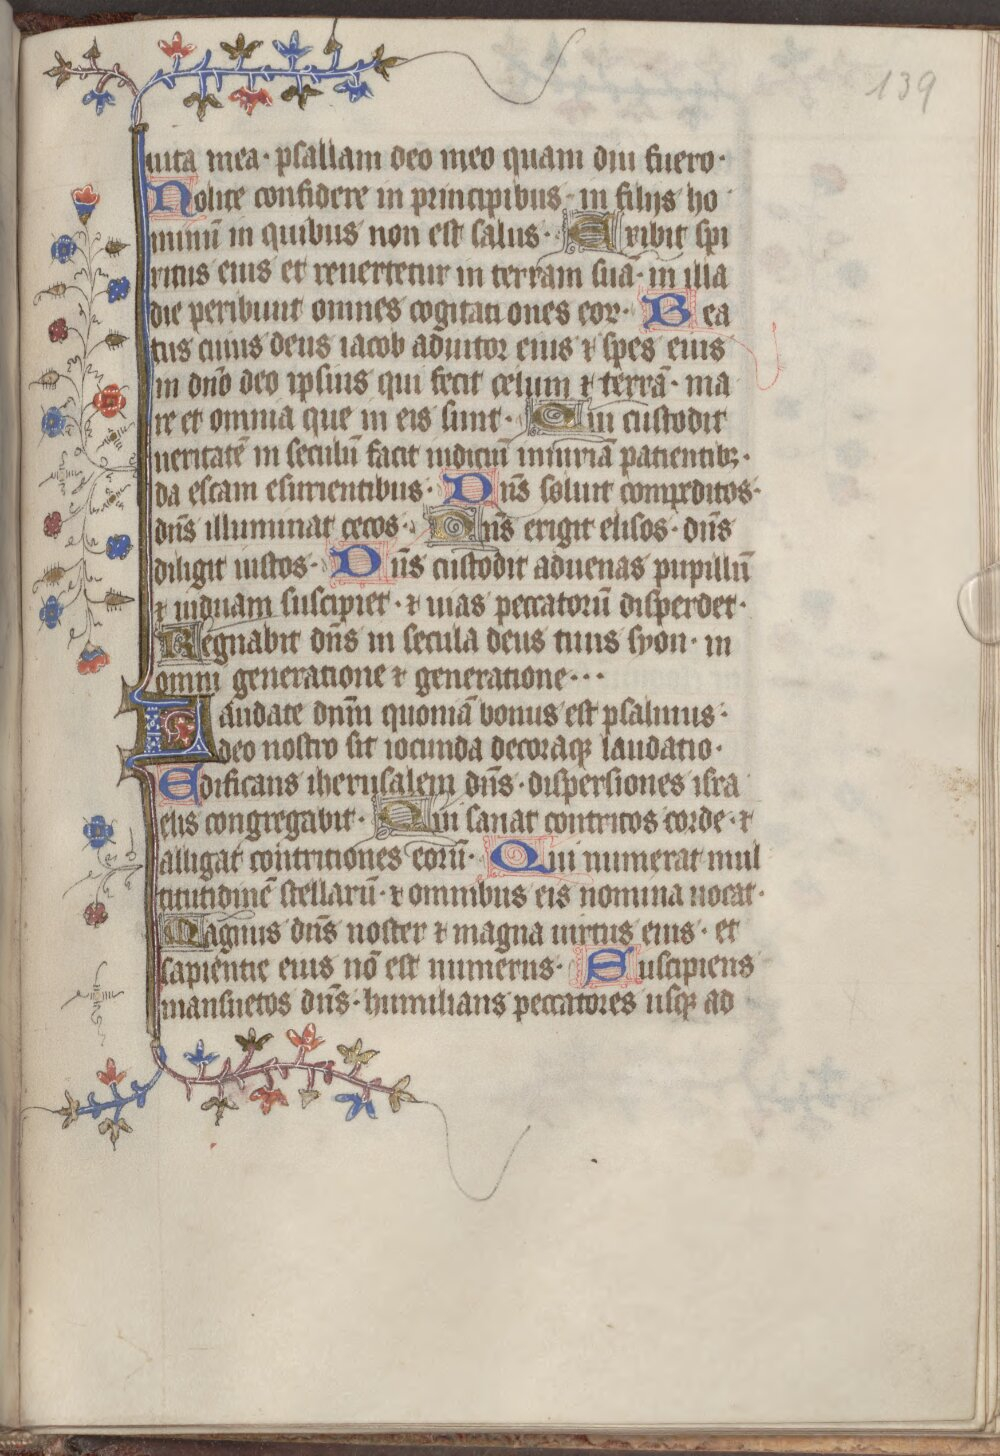 139
uita mea · psallam deo meo quam diu fuero ·
Nolite confidere in principibus · in filijs ho
minū in quibus non est salus · Exibit spi
ritus eius et reuertetur in terram suā · in illa
die peribunt omnes cogitationes eor · Bea
tus cuius deus iacob adiutor eius ⁊ spes eius
in dn̄o deo ipsius qui fecit celum ⁊ terrā · ma
re et omnia que in eis sunt · Qui custodit
ueritatē in seculū facit iudiciū iniuriā patientibꝫ ·
da escam esurientibus · Dn̄s soluit compeditos ·
dn̄s illuminat cecos · Dn̄s erigit elisos · dn̄s
diligit iustos · Dn̄s custodit aduenas pupillū
⁊ uiduam suscipiet · ⁊ uias peccatorū disperdet ·
Regnabit dn̄s in secula deus tuus syon · in
omni generatione ⁊ generatione · · ·
Laudate dn̄m quoniā bonus est psalmus ·
deo nostro sit iocunda decoraqꝫ laudatio ·
Edificans iherusalem dn̄s · dispersiones isra
elis congregabit · Qui sanat contritos corde · ⁊
alligat contritiones eorū · Qui numerat mul
titutidinē stellarū · ⁊ omnibus eis nomina uocat ·
Magnus dn̄s noster ⁊ magna uirtus eius · et
sapientie eius nō est numerus · Suscipiens
mansuetos dn̄s · humilians peccatores usqꝫ ad